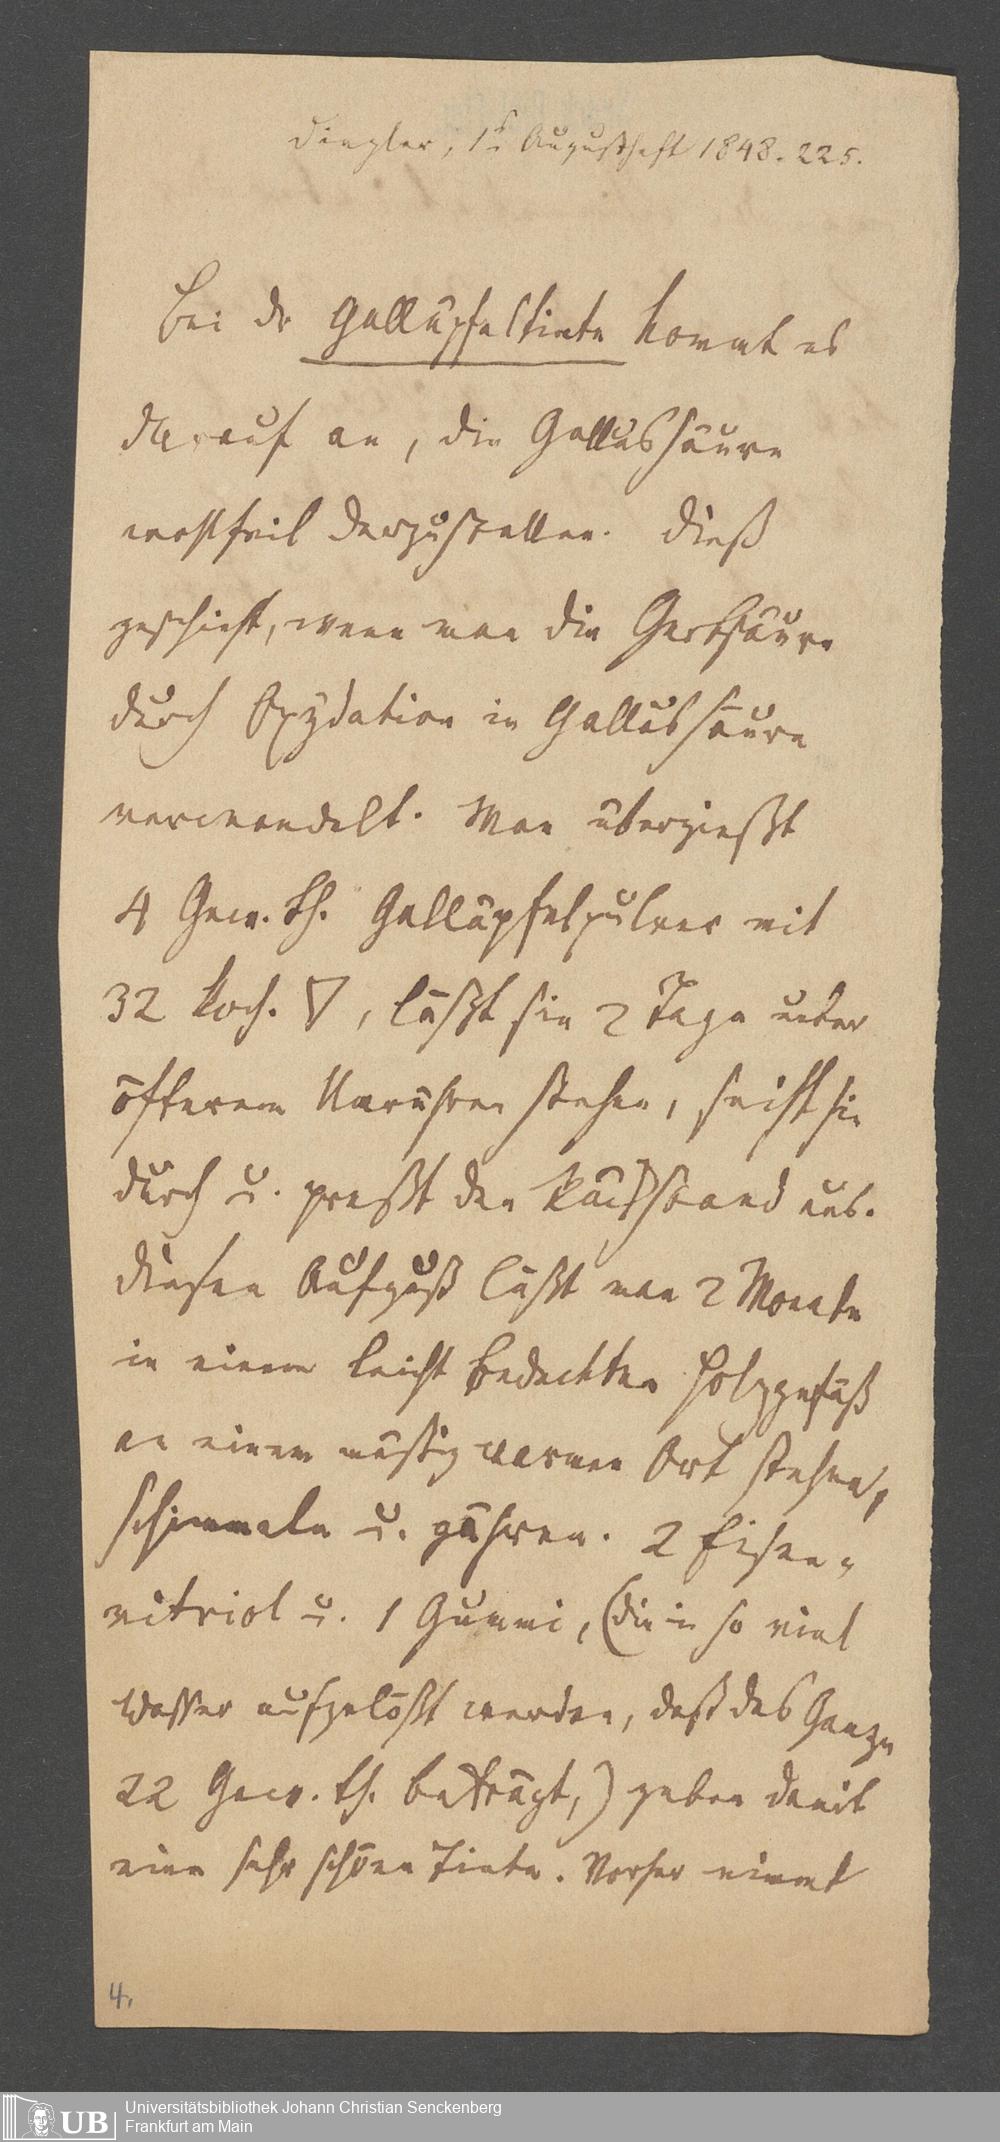 Dingler, 1s Augustheft 1848. 225.
Bei dr Galläpfeltinte kommt es
darauf an, die Gallussäure
wohlfeil darzustellen. Dieß
geschieht, wenn man die Gerbsäure
durch Oxydation in Gallussäure
verwandelt. Man übergießt
4 Gew. th. Galläpfelpulver mit
32 koch. ▽, läßt sie 2 Tage unter
öfterem Umrühren stehen, seiht sie
durch u. preßt den Rückstand aus.
Diesen Aufguß läßt man 2 Monate
in einem leicht bedeckten Holzgefäß
an einem mäßig warmen Ort stehen,
schimmeln u. gähren. 2 Eisen-
vitriol u. 1 Gummi, (die in so viel
Wasser aufgelößt werden, daß das Ganze
22 Gew. th. beträgt,) geben damit
eine sehr schöne Tinte. Vorher nimmt
4.
UB
Universitätsbibliothek Johann Christian Senckenberg
Frankfurt am Main